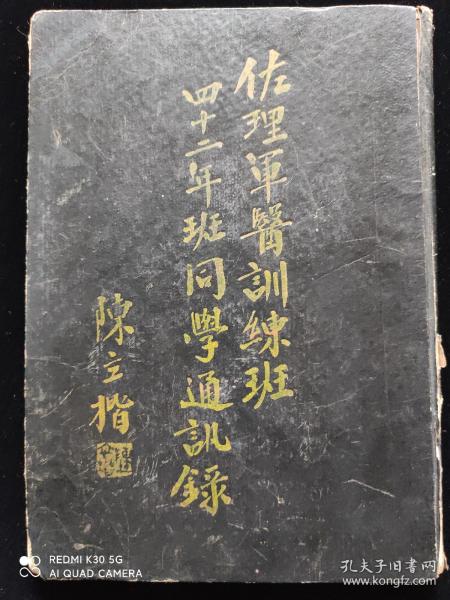 佐理軍醫訓練班
四十二年班同學通訊錄
陳立楷
REDMI K30 5G
AI QUAD CAMERA
孔夫子旧书网
www.kongfz.com